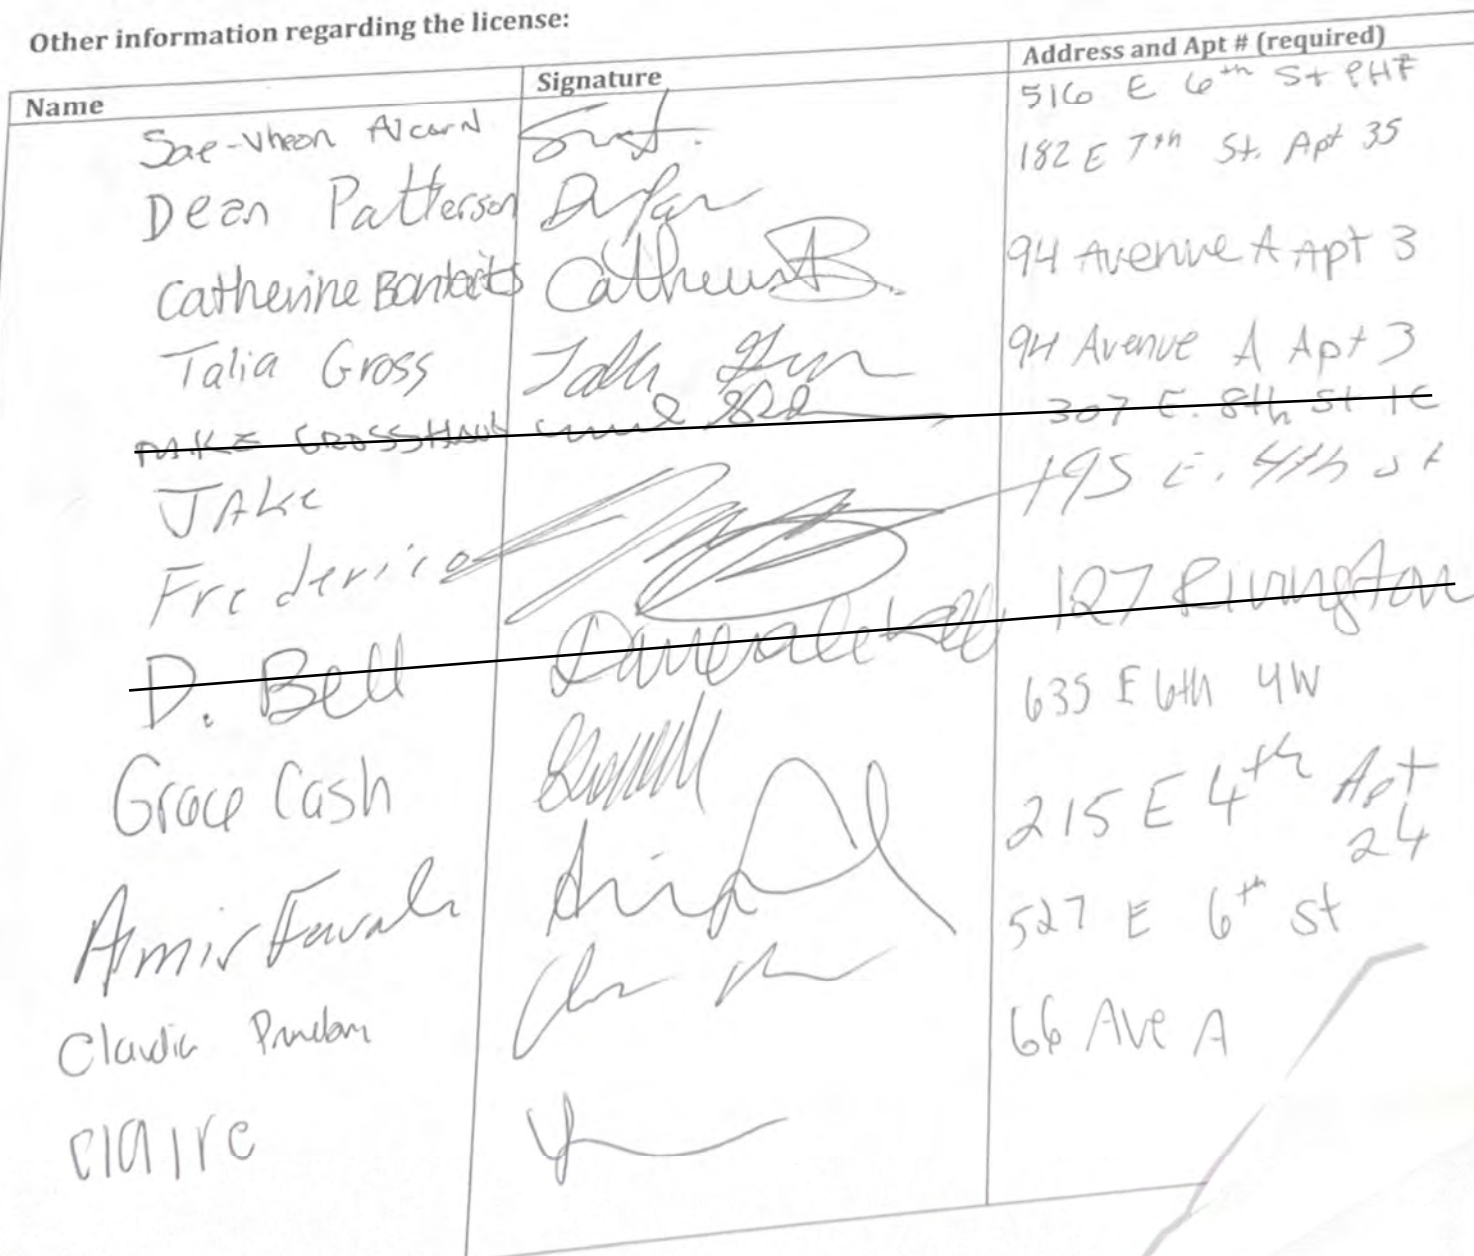 Other information regarding the license:
Name Signature Address and Apt # (required)
Sae-Vheon Alcorn 516 E 6th St PHF
Dean Patterson 182 E 7th St. Apt 35
Catherine Catherine B. 94 Avenue A Apt 3
Talia Gross Talia Gross 94 Avenue A Apt 3
MIKE GROSSHANDL 307 E. 8th St 1C
JAKE 195 E. 4th St
Frederico
D. Bell Bell 127 Rivington
Grace Cash 635 E 6th 4W
Amir 215 E 4th Apt
24
Claudia 527 E 6th St
Claire 66 Ave A